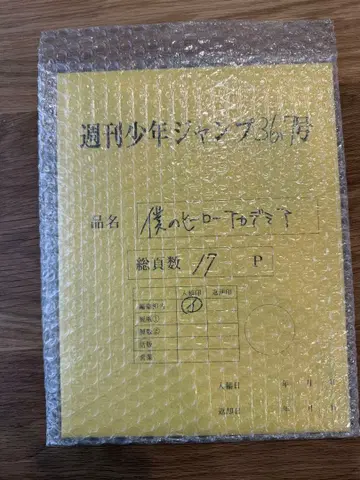 週刊少年ジャンプ36.7号
品名 僕のヒーローアカデミア
総頁数 17 P
入稿印 返却印
入稿日 年 月 日
返却日 年 月 日